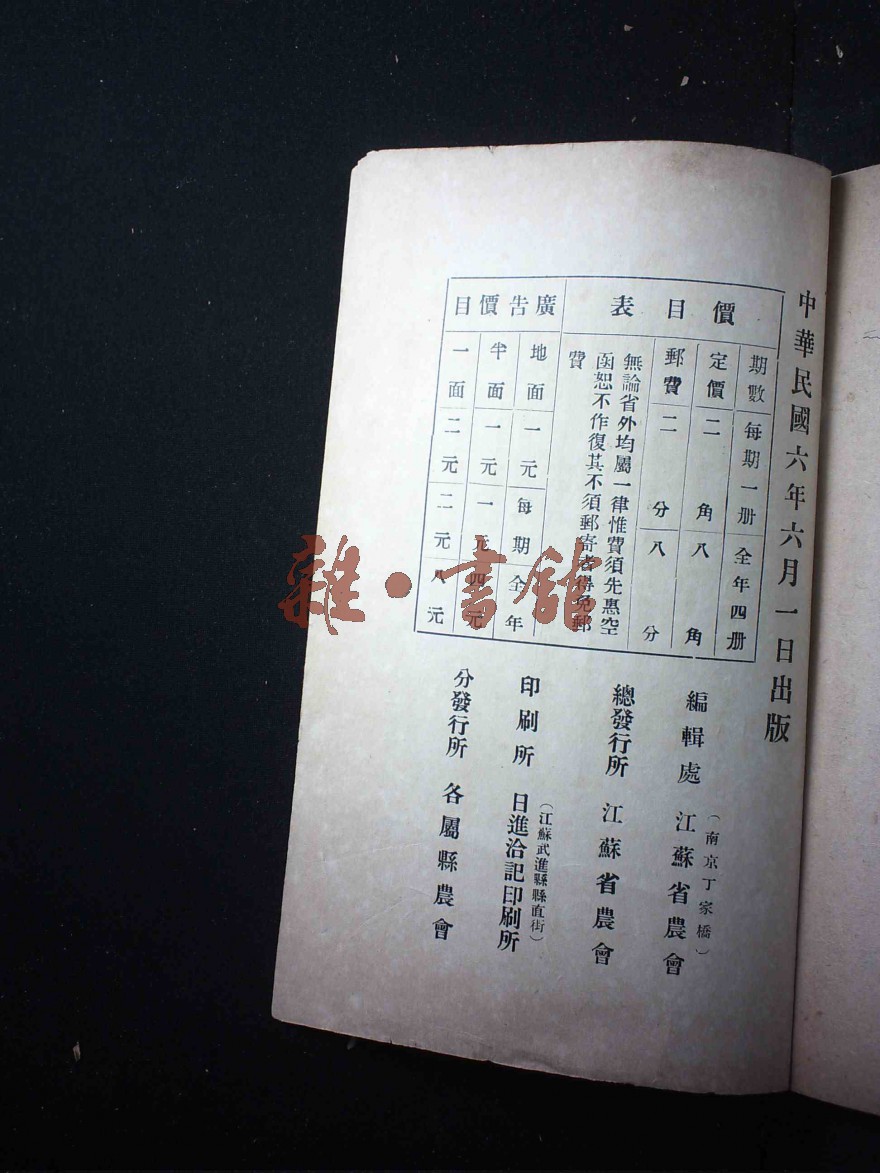 中華民國六年六月一日出版
價目表
期數 每期一册 全年四册
定價 二角 八角
郵費 二分 八分
無論省外均屬一律惟費須先惠空
函恕不作復其不須郵寄者得免郵
費
廣告價目
地面 一元 每期 全年
半面 一元 一元 四元
一面 二元 二元 八元
編輯處 江蘇省農會
（南京丁家橋）
總發行所 江蘇省農會
印刷所 日進洽記印刷所
（江蘇武進縣縣直街）
分發行所 各屬縣農會
雜·書館